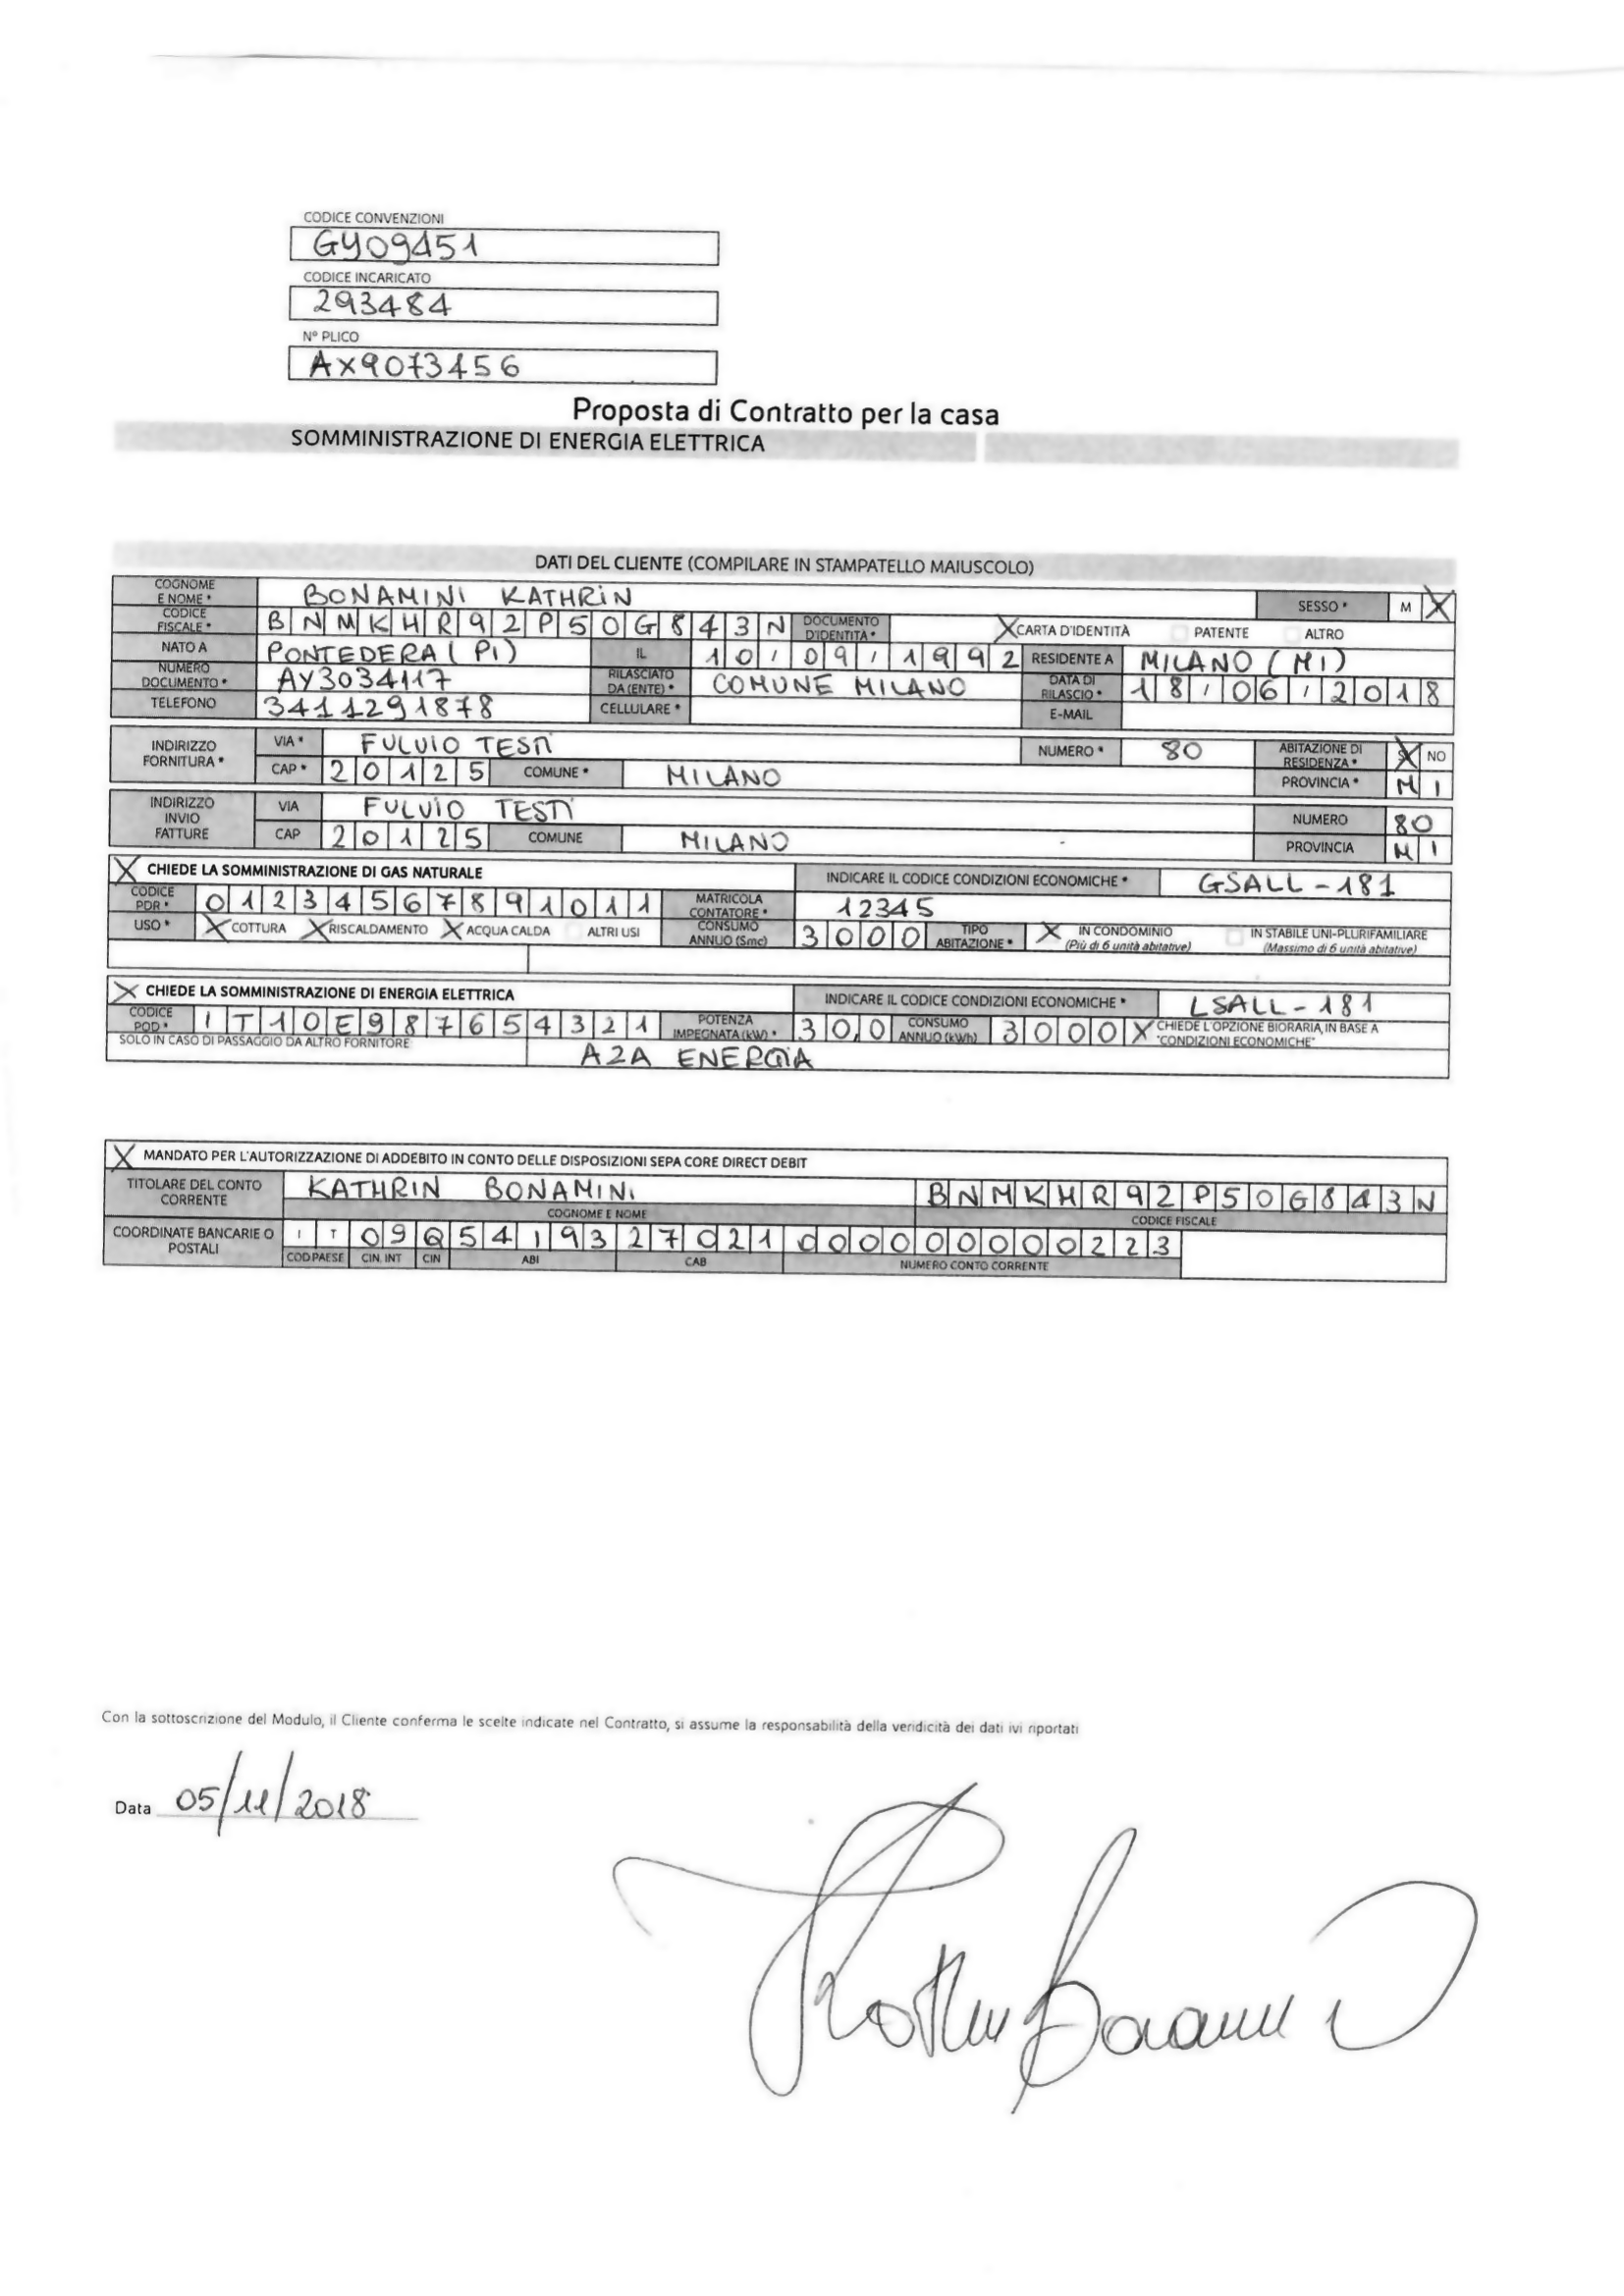 CODICE CONVENZIONI
GY09451
CODICE INCARICATO
293484
N° PLICO
AX9073456
Proposta di Contratto per la casa
SOMMINISTRAZIONE DI ENERGIA ELETTRICA
DATI DEL CLIENTE (COMPILARE IN STAMPATELLO MAIUSCOLO)
COGNOME E NOME * BONAMINI KATHRIN SESSO * M X
CODICE FISCALE * BNMKHR92P50G843N DOCUMENTO D'IDENTITÀ * X CARTA D'IDENTITÀ PATENTE ALTRO
NATO A PONTEDERA (PI) IL 10/09/1992 RESIDENTE A MILANO (MI)
NUMERO DOCUMENTO * AY3034117 RILASCIATO DA (ENTE) * COMUNE MILANO DATA DI RILASCIO * 18/06/2018
TELEFONO 3411291878 CELLULARE * E-MAIL
INDIRIZZO FORNITURA * VIA * FULVIO TESTI NUMERO * 80 ABITAZIONE DI RESIDENZA * X NO
CAP * 20125 COMUNE * MILANO PROVINCIA * MI
INDIRIZZO INVIO FATTURE VIA FULVIO TESTI NUMERO 80
CAP 20125 COMUNE MILANO PROVINCIA MI
X CHIEDE LA SOMMINISTRAZIONE DI GAS NATURALE INDICARE IL CODICE CONDIZIONI ECONOMICHE * GSALL-181
CODICE PDR * 01234567891011 MATRICOLA CONTATORE * 12345
USO * X COTTURA X RISCALDAMENTO X ACQUA CALDA ALTRI USI CONSUMO ANNUO (Smc) 3000 TIPO ABITAZIONE * X IN CONDOMINIO (Più di 6 unità abitative) IN STABILE UNI-PLURIFAMILIARE (Massimo di 6 unità abitative)
X CHIEDE LA SOMMINISTRAZIONE DI ENERGIA ELETTRICA INDICARE IL CODICE CONDIZIONI ECONOMICHE * LSALL-181
CODICE POD * IT10E987654321 POTENZA IMPEGNATA (kW) * 30,0 CONSUMO ANNUO (kWh) 3000 X CHIEDE L'OPZIONE BIORARIA, IN BASE A "CONDIZIONI ECONOMICHE"
SOLO IN CASO DI PASSAGGIO DA ALTRO FORNITORE A2A ENERGIA
X MANDATO PER L'AUTORIZZAZIONE DI ADDEBITO IN CONTO DELLE DISPOSIZIONI SEPA CORE DIRECT DEBIT
TITOLARE DEL CONTO CORRENTE KATHRIN BONAMINI BNMKHR92P50G843N
COGNOME E NOME CODICE FISCALE
COORDINATE BANCARIE O POSTALI IT 09 Q 54193 27021 000000000223
COD PAESE CIN. INT CIN ABI CAB NUMERO CONTO CORRENTE
Con la sottoscrizione del Modulo, il Cliente conferma le scelte indicate nel Contratto, si assume la responsabilità della veridicità dei dati ivi riportati
Data 05/11/2018
Kathrin Bonamini